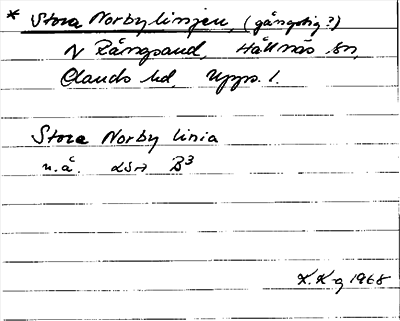 * Stora Norbylinjen, (gångstig?)
N Rångsand, Hållnäs sn,
Olands hd, Upps. l.
Stora Norby linia
u.å. LSA B3
K.K-g 1968